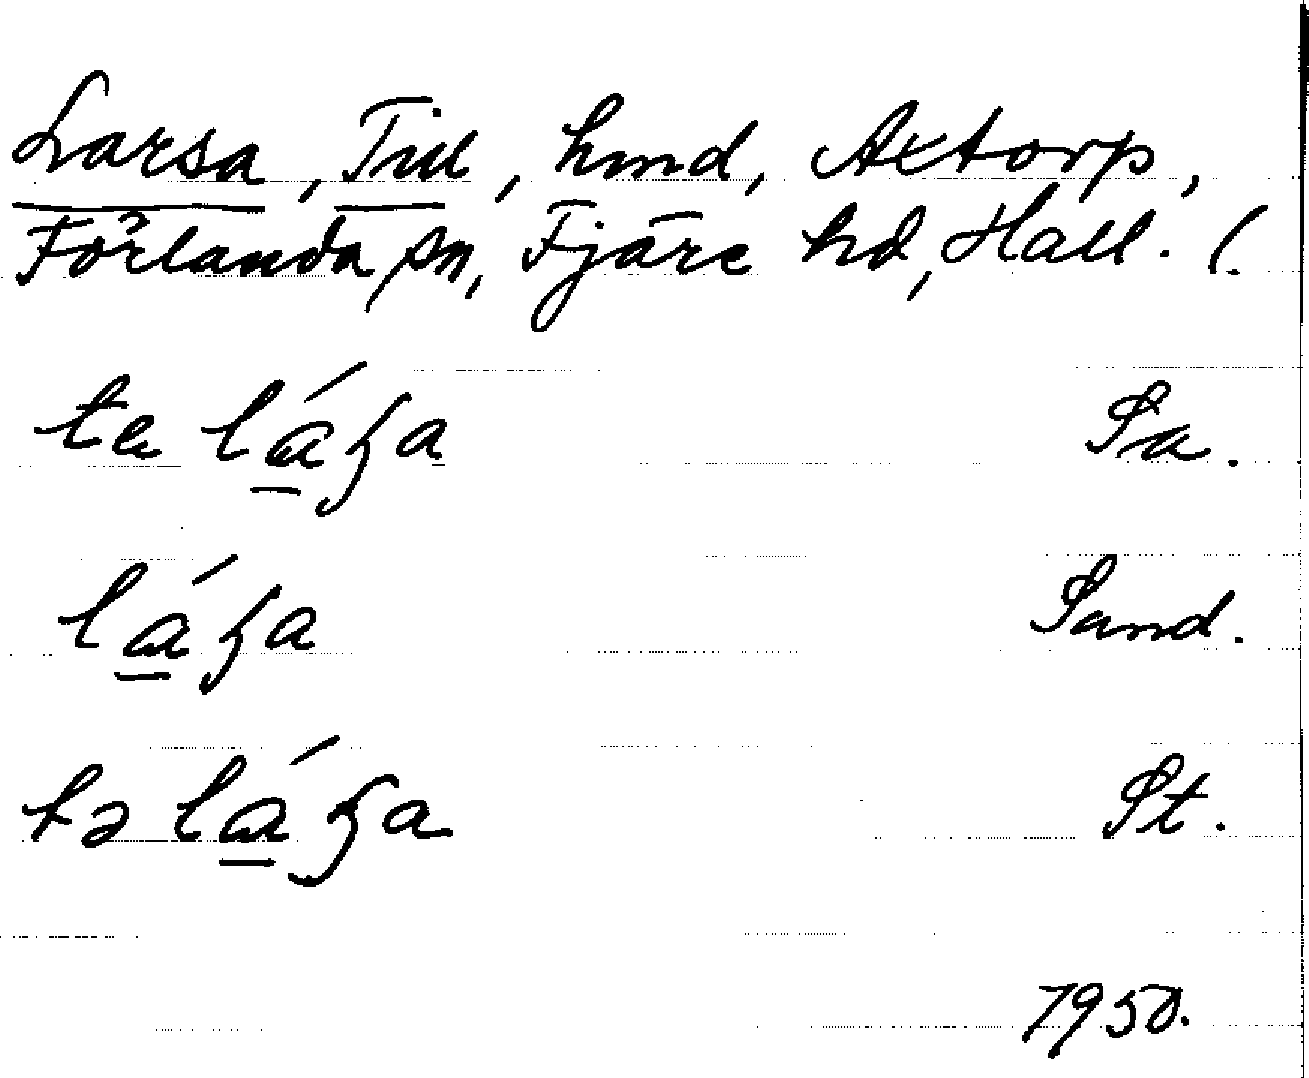 Larsa, Till, hmd, Axtorp,
Förlanda sn, Fjäre hd, Hall. l.
te láʒa Sa.
láʒa Sand.
tə láʒa St.
1950.